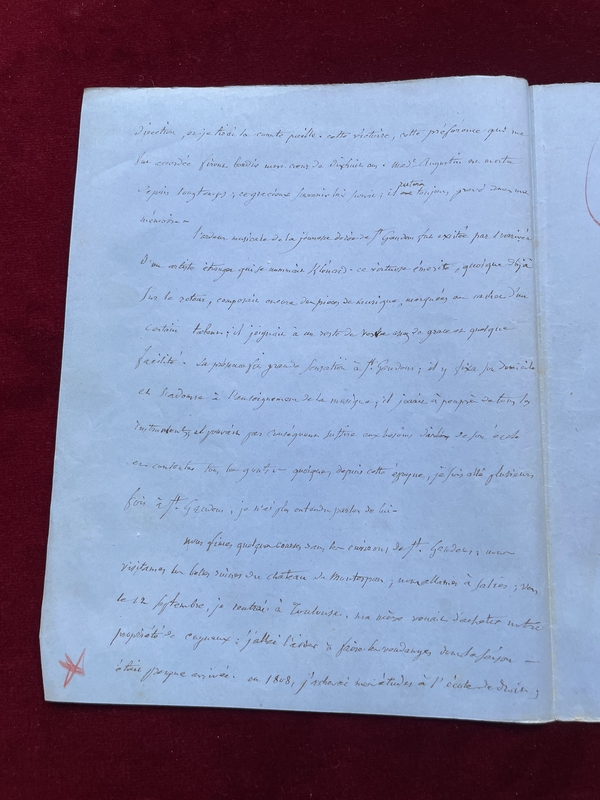 direction, et je tirai la courte paille. cette victoire, cette préférence qui me
fut accordée firent bondir mon cœur de dixhuit ans. Mad. Augustin est morte
depuis longtemps; ce gracieux souvenir est toujours gravé dans ma
mémoire -
l'ardeur musicale de la jeunesse dorée de St. Gaudens fut excitée par l'arrivée
d'un artiste étranger qui se nommait ce virtuose émérite, quoique déjà
sur le retour, composait encore des pièces de musique, marquées au cachet d'un
certain talent; il joignait à un reste de voix assez de grace et quelque
facilité. Sa présence fit grande sensation à St. Gaudens; il y fixa son domicile
et s'adonna à l'enseignement de la musique; il jouait à peu près de tous les
instruments, et pouvait par conséquent suffire aux besoins de son école
et contenter tous les gouts - quoique, depuis cette époque, je sois allé plusieurs
fois à St. Gaudens, je n'ai plus entendu parler de lui -
nous fîmes quelques courses dans les environs de St. Gaudens; nous
visitames les belles ruines du chateau de Montespan; nous allames à Salies; vers
le 12 septembre, je rentrai à Toulouse. ma mère venait d'acheter notre
propriété de j'allai l'aider à faire les vendanges dont la saison
était presque arrivée. en 1808, j'achevai mes études à l'école de droit;